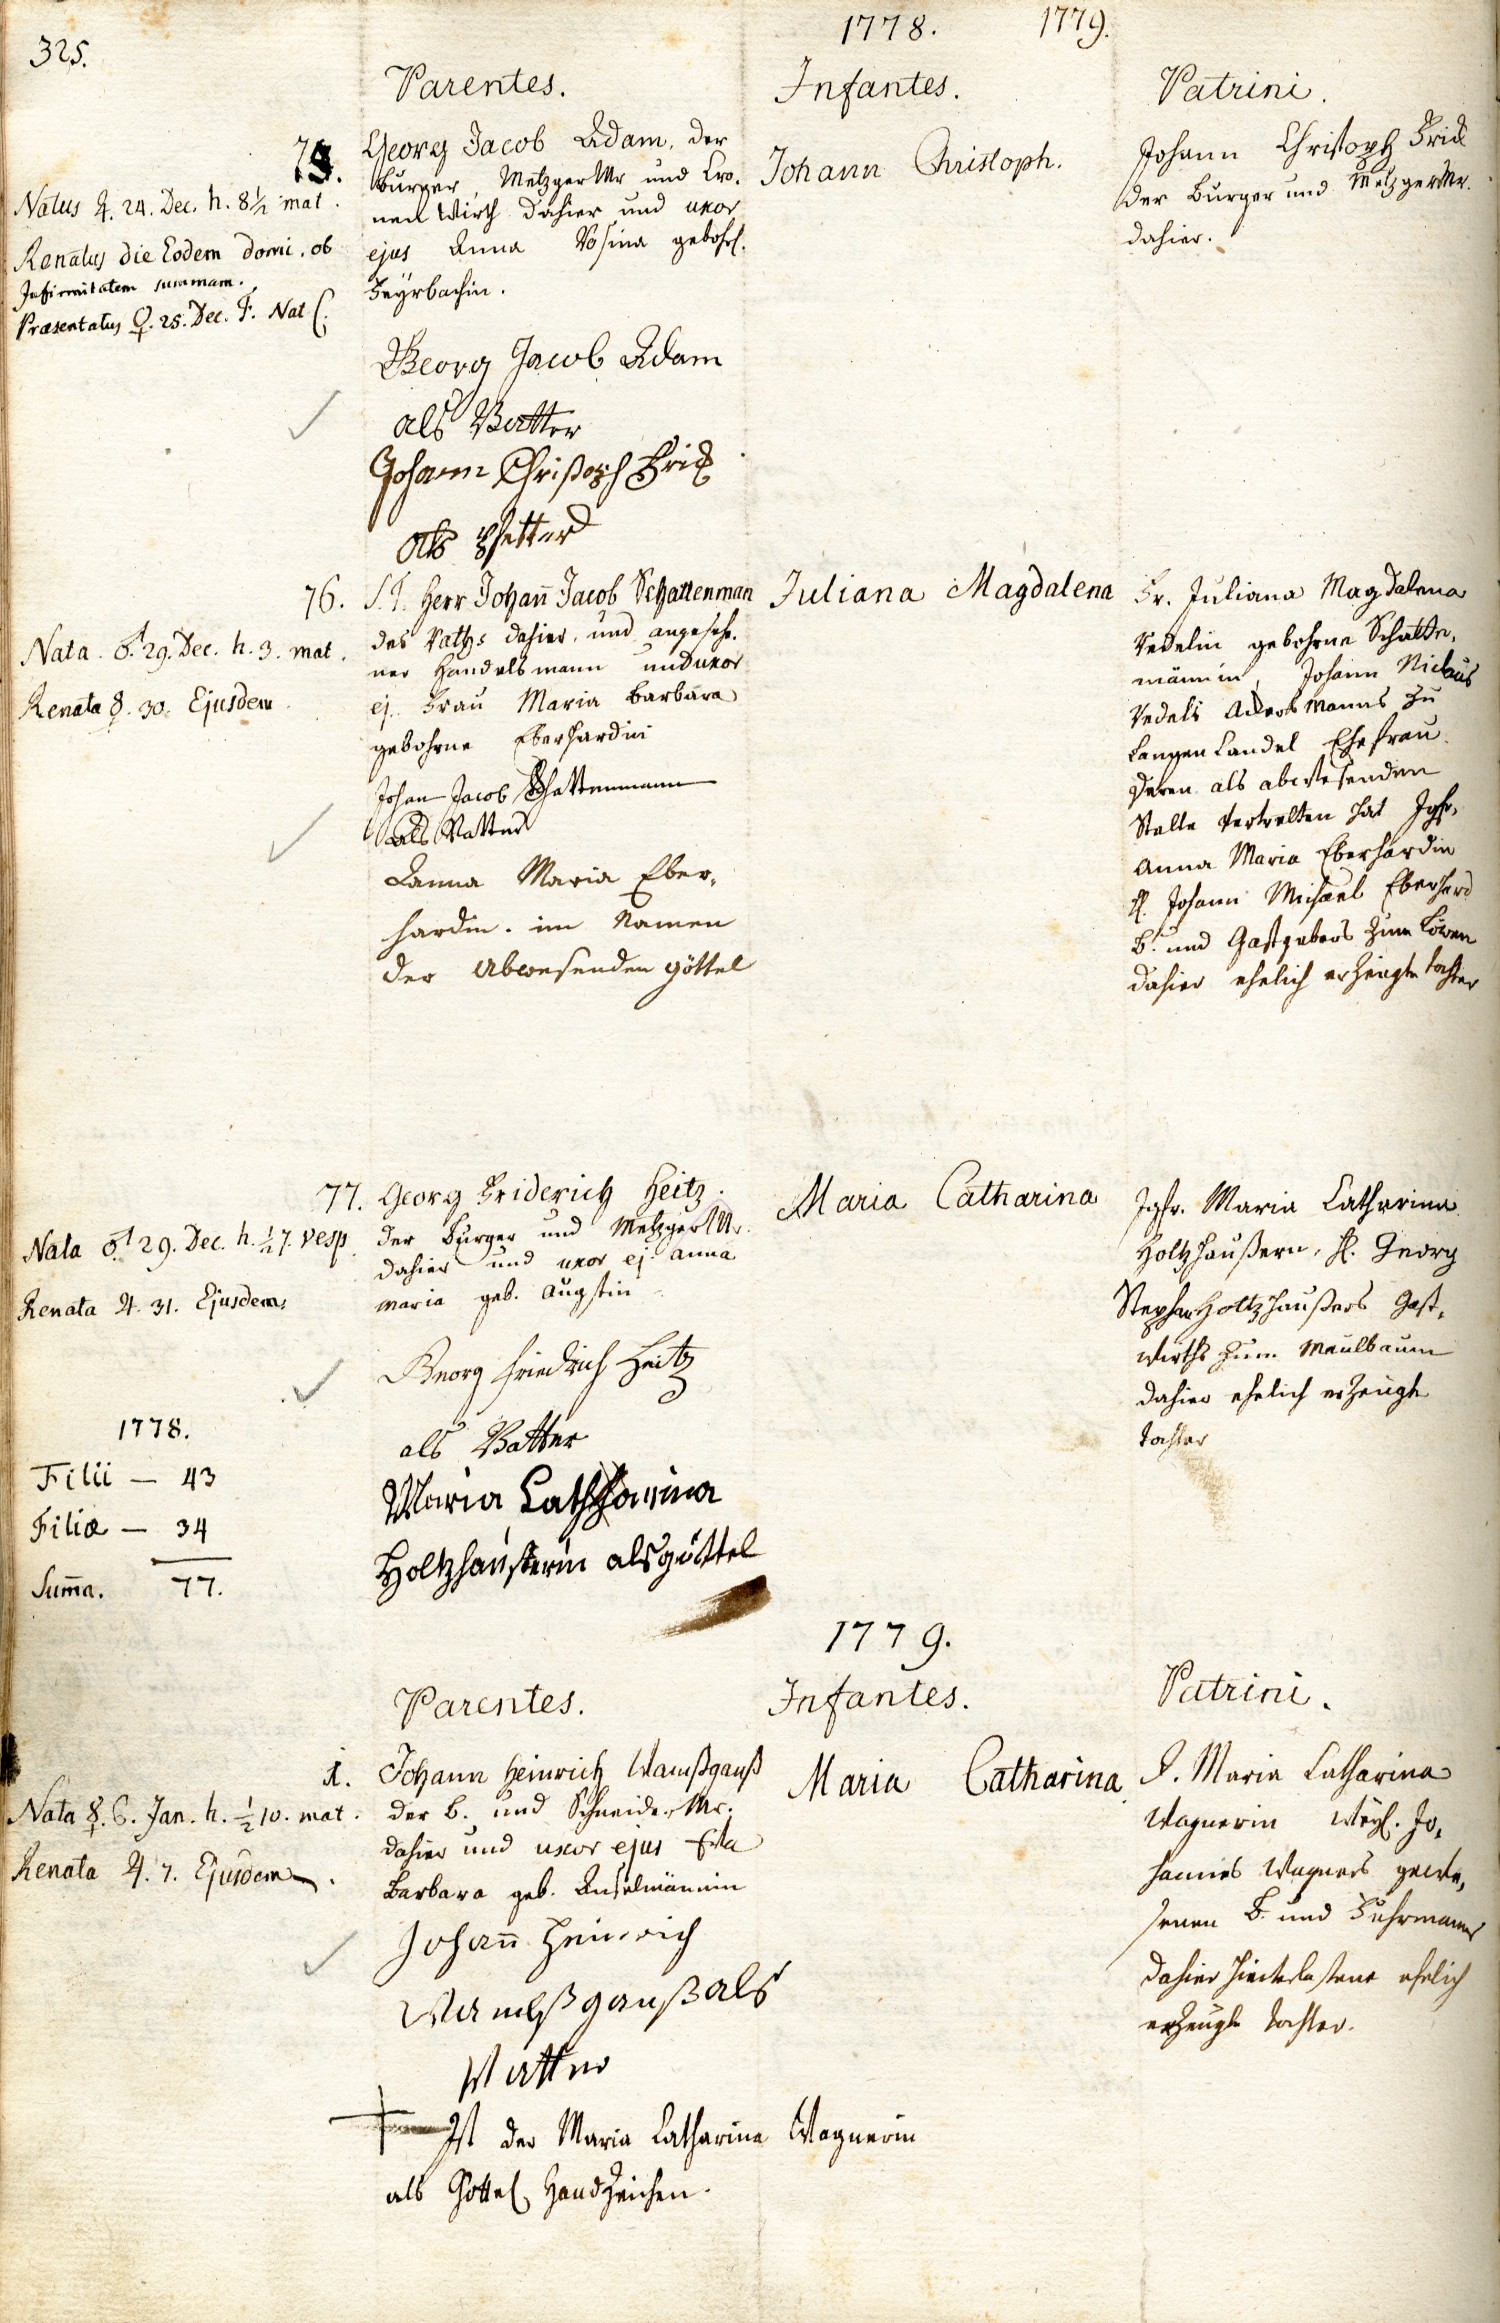 325.
1778.
1779.
Parentes.
Infantes.
Patrini.
75.
Natus ♃. 24. Dec. h. 8½ mat.
Renatus die Eodem domi. ob
Infirmitatem summam.
Præsentatus ♀. 25. Dec. F. Nat C.
Georg Jacob Adam, der
burger, Metzger Mr und Cro-
nen Wirth dahier und uxor
ejus Anna Rosina gebohr.
Feyrbachin.
Georg Jacob Adam
als Vatter
Johann Christoph
als Pfetter
Johann Christoph.
Johann Christoph
der burger und Metzger Mr.
dahier.
76.
Nata ♂. 29. Dec. h. 3. mat.
Renata ☿. 30. Ejusdem
S. T. Herr Johañ Jacob Schattenman
des Raths dahier, und angesehe-
ner Handelsmann und uxor
ej. Frau Maria Barbara
gebohrne Eberhardin
Johan Jacob Schattenmann
als Vatter
Anna Maria Eber-
hardin. im Namen
der abwesenden göttel
Juliana Magdalena
Fr. Juliana Magdalena
Redelin gebohrne Schatte-
männin, Johann Niclaus
Redels Ackersmanns zu
Langen Candel Ehefrau
deren als abwesenden
Stelle vertretten hat Jgfr.
Anna Maria Eberhardin
H. Johann Michael Eberhard
B. und Gastgebers zum Löwen
dahier ehelich erzeugte tochter
77.
Nata ♂ 29. Dec. h. ½7. vesp.
Renata ♃. 31. Ejusdem.
Georg Friderich Heitz.
der burger und Metzger Mr.
dahier und uxor ej. Anna
Maria geb. Augstin
Georg Friedrich Heitz
als Vatter
Maria Catharina
Holtzhäuserin als göttel
Maria Catharina
Jgfr. Maria Catharina
Holtzhaußern, H. Georg
Stephan Holtzhaußers Gast-
wirths zum Maulbaum
dahier ehelich erzeugte
tochter
1778.
Filii — 43
Filiæ — 34
Sum̄a. 77.
1779.
Parentes.
Infantes.
Patrini.
1.
Nata ☿. 6. Jan. h. ½10. mat.
Renata ♃. 7. Ejusdem.
Johann Heinrich Wamßganß
der B. und Schneider Mr.
dahier und uxor ejus Eva
Barbara geb. Anselmännin
Johañ Heinrich
Wamßganß als
Vatter
Ist der Maria Catharina Wagnerin
als Göttel Handzeichen.
Maria Catharina
J. Maria Catharina
Wagnerin Weyl. Jo-
hannes Wagners gewe-
senen B. und Fuhrmanns
dahier hinterlaßene ehelich
erzeugte tochter.